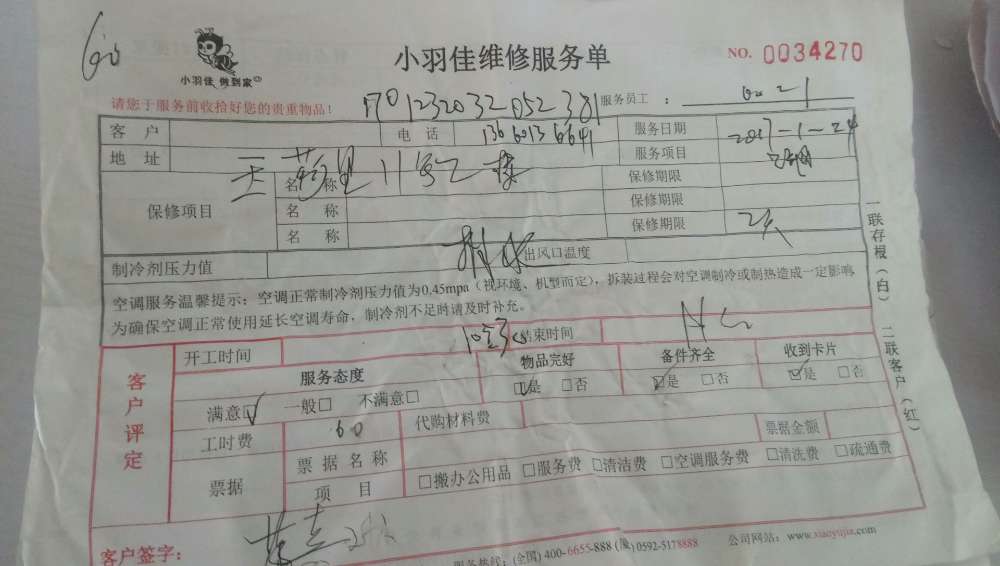 60
小羽佳维修服务单
NO. 0034270
小羽佳 做到家
请您于服务前收拾好您的贵重物品！
服务员工：
客 户
电 话
服务日期
2017-1-24
地 址
服务项目
保修项目
名 称
保修期限
名 称
保修期限
名 称
保修期限
制冷剂压力值
出风口温度
空调服务温馨提示：空调正常制冷剂压力值为0.45mpa（视环境、机型而定），拆装过程会对空调制冷或制热造成一定影响
为确保空调正常使用延长空调寿命，制冷剂不足时请及时补充。
一联存根（白） 二联客户（红）
客户评定
开工时间
结束时间
服务态度
物品完好
备件齐全
收到卡片
满意☑ 一般□ 不满意□
☑是 □否
☑是 □否
☑是 □否
工时费
60
代购材料费
票据金额
票据
票据名称
项 目
□搬办公用品 □服务费 □清洁费 □空调服务费 □清洗费 □疏通费
客户签字：
服务热线：(全国) 400-6655-888 (厦) 0592-5178888
公司网站：www.xiaoyujia.com